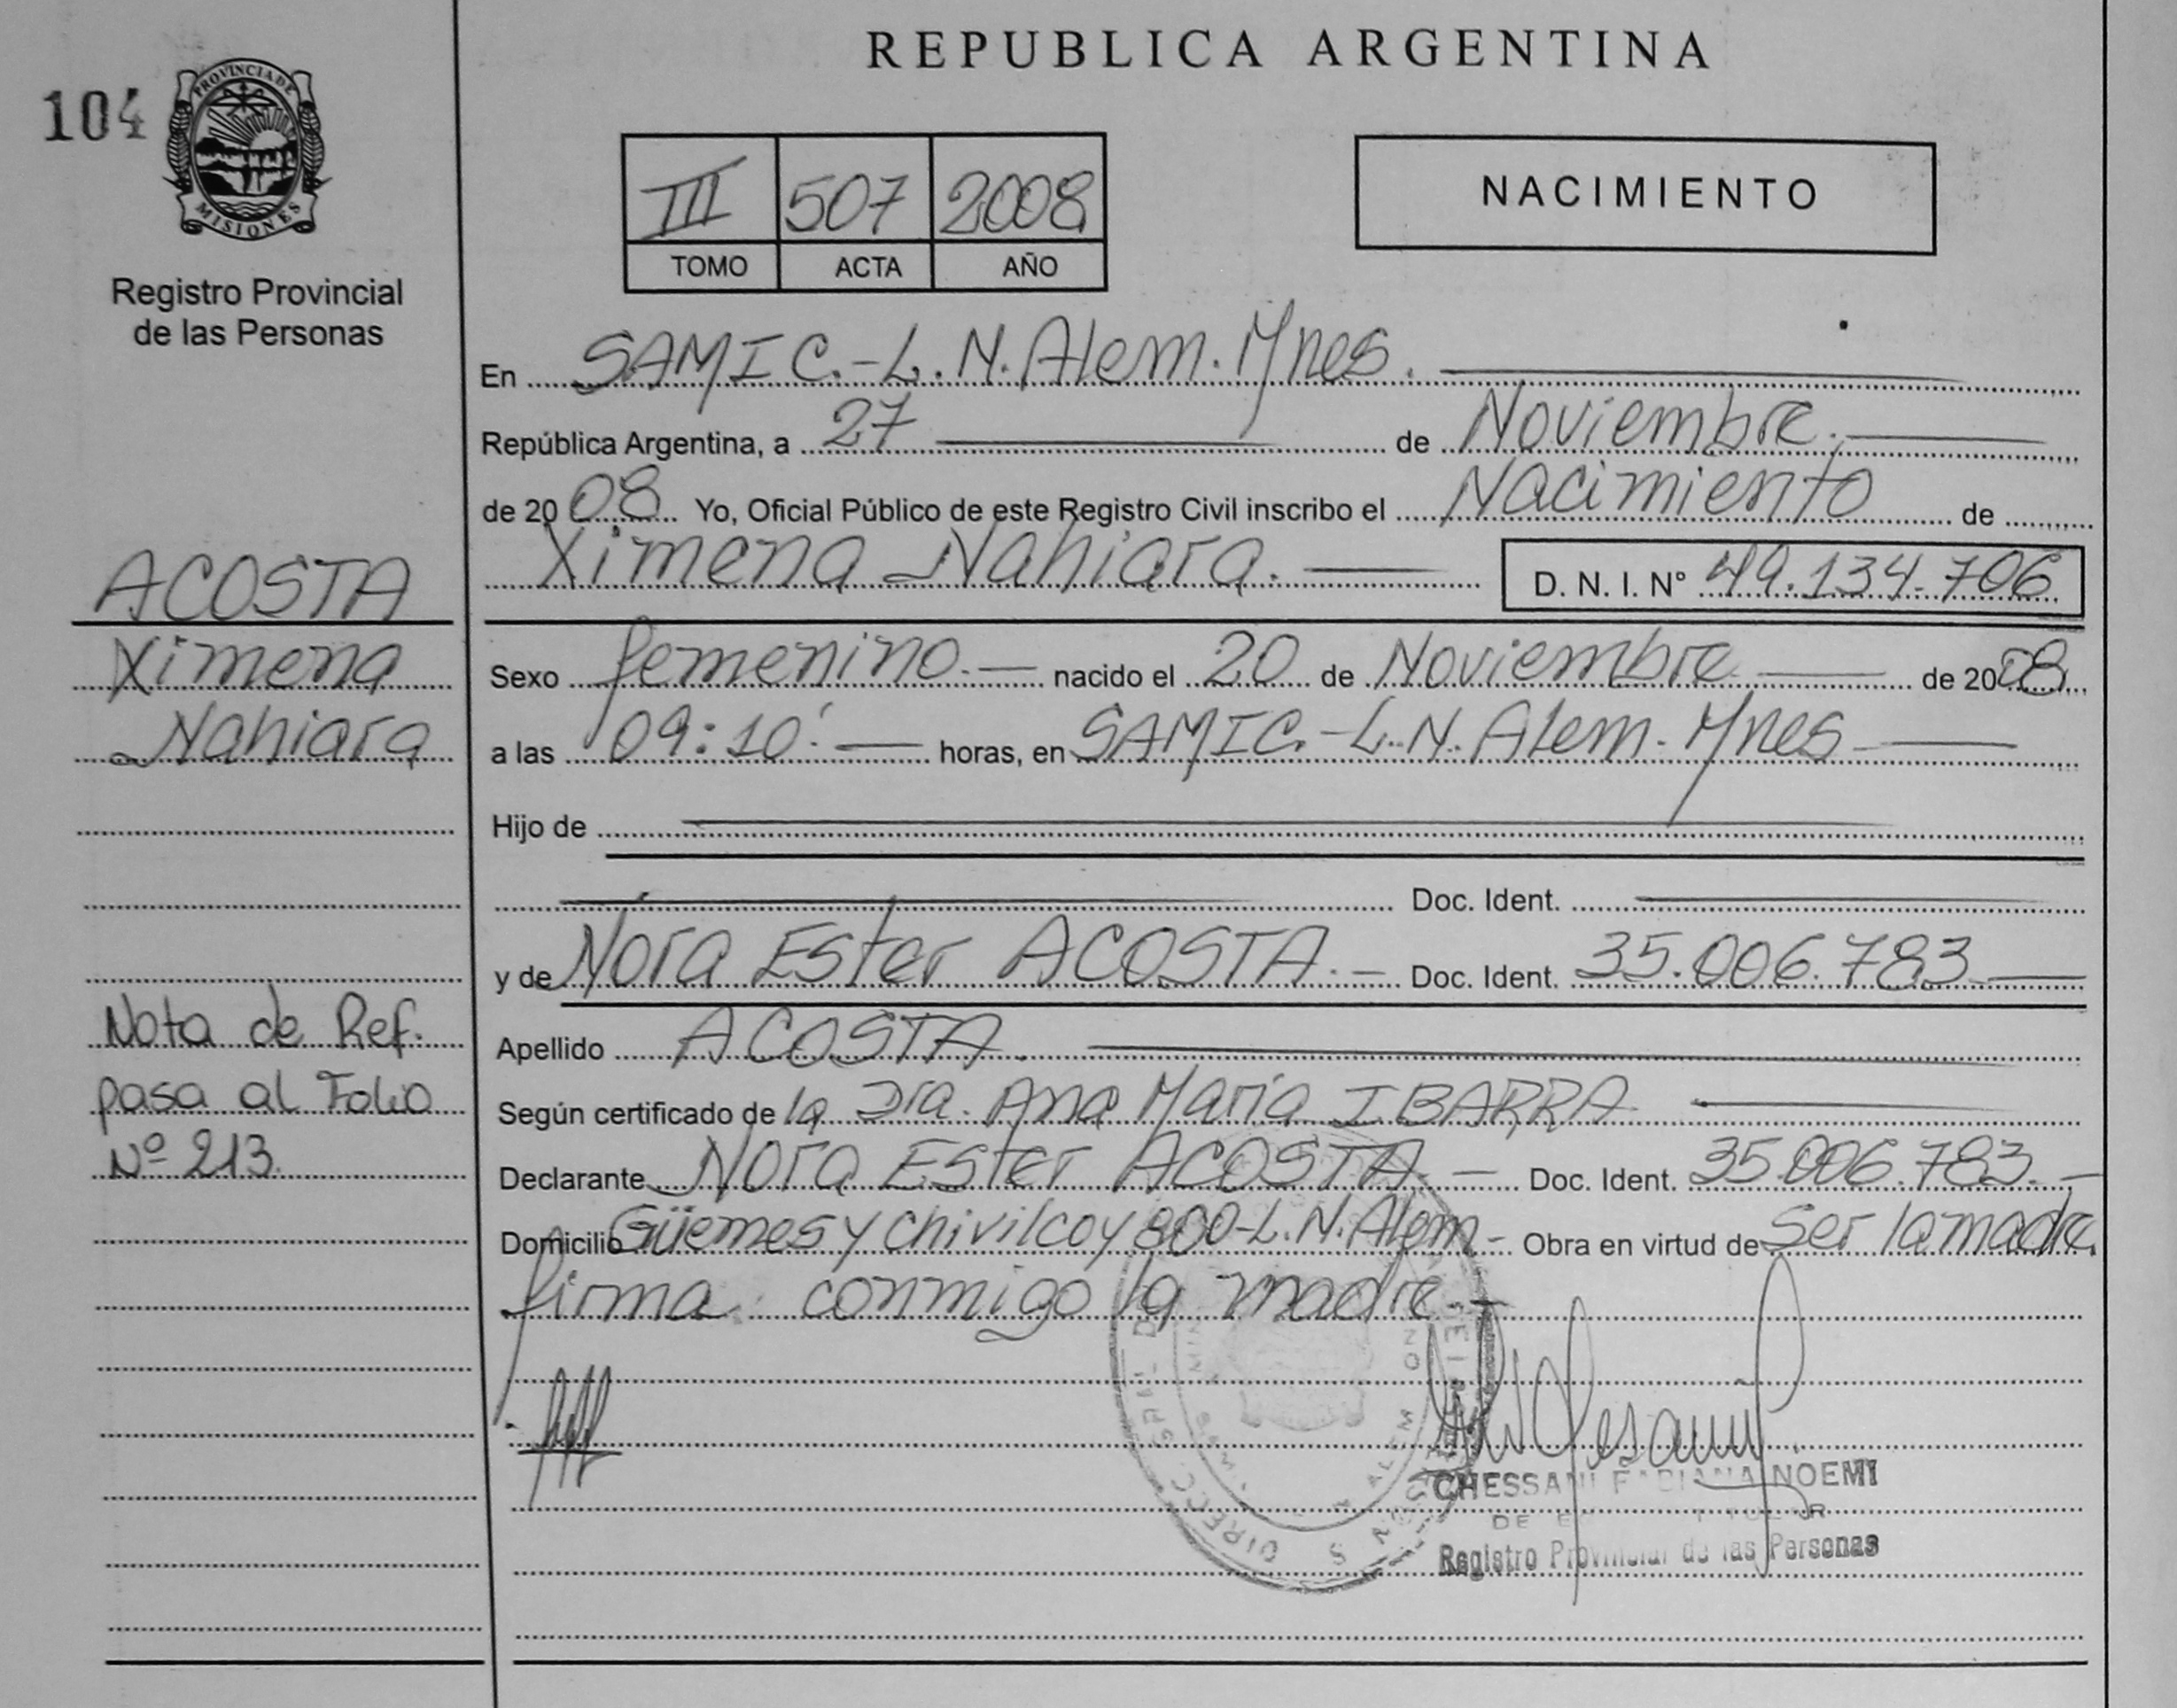 REPUBLICA ARGENTINA
104
PROVINCIA DE
MISIONES
Registro Provincial
de las Personas
III 507 2008
TOMO ACTA AÑO
NACIMIENTO
En SAMIC.-L.N.Alem.Mnes.
República Argentina, a 27 de Noviembre.
de 2008 Yo, Oficial Público de este Registro Civil inscribo el Nacimiento de
Ximena Nahiara. D. N. I. Nº 49.134.706
ACOSTA
Ximena
Nahiara
Sexo femenino.- nacido el 20 de Noviembre de 2008
a las 09:10' horas, en SAMIC.-L.N.Alem.Mnes
Hijo de
Doc. Ident.
y de Nora Ester ACOSTA.- Doc. Ident. 35.006.783
Apellido ACOSTA.
Según certificado de la Dra. Ana María IBARRA
Declarante Nora Ester ACOSTA.- Doc. Ident. 35.006.783.-
Domicilio Güemes y Chivilcoy 800-L.N.Alem.- Obra en virtud de Ser la madre.
firma conmigo la madre.-
Nota de Ref.
pasa al Folio
Nº 213.
CHESSANI FABIANA NOEMI
Registro Provincial de las Personas